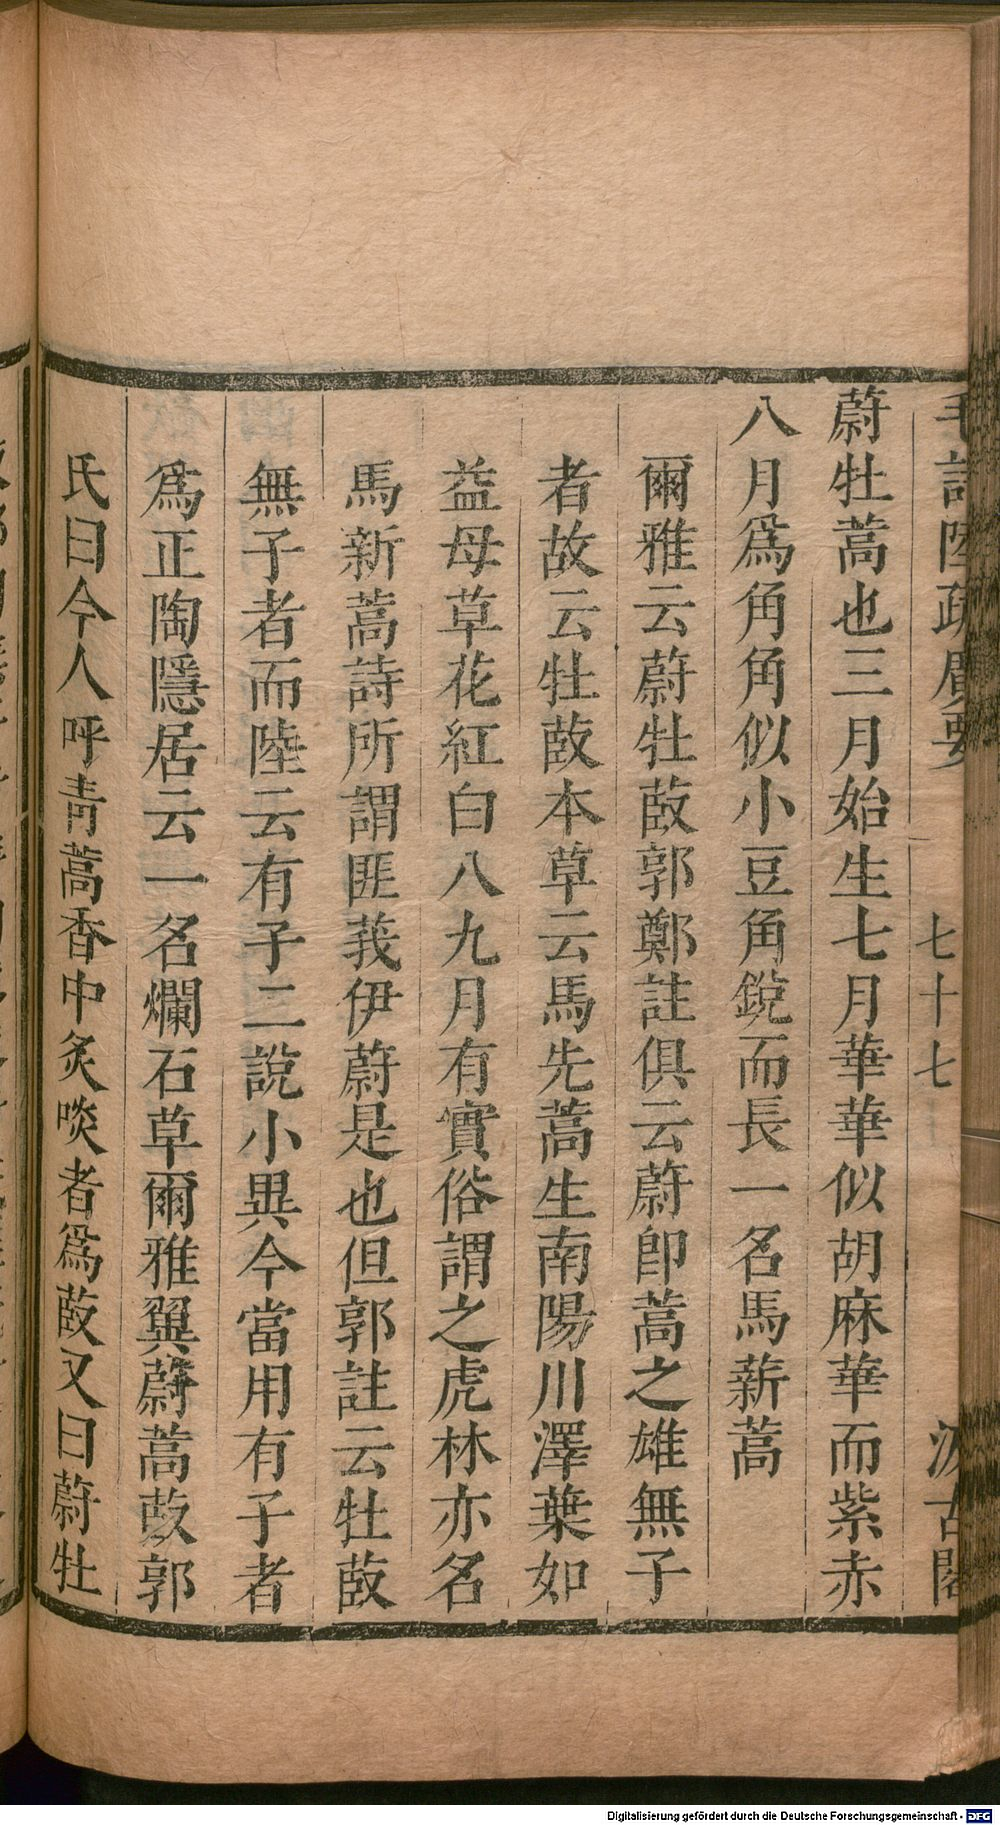 毛詩陸疏廣要
七十七
汲古閣
蔚牡蒿也三月始生七月華華似胡麻華而紫赤
八月爲角角似小豆角銳而長一名馬薪蒿
爾雅云蔚牡菣郭鄭註俱云蔚卽蒿之雄無子
者故云牡菣本草云馬先蒿生南陽川澤葉如
益母草花紅白八九月有實俗謂之虎林亦名
馬新蒿詩所謂匪莪伊蔚是也但郭註云牡菣
無子者而陸云有子二說小異今當用有子者
爲正陶隱居云一名爛石草爾雅翼蔚蒿菣郭
氏曰今人呼青蒿香中炙啖者爲菣又曰蔚牡
Digitalisierung gefördert durch die Deutsche Forschungsgemeinschaft - DFG